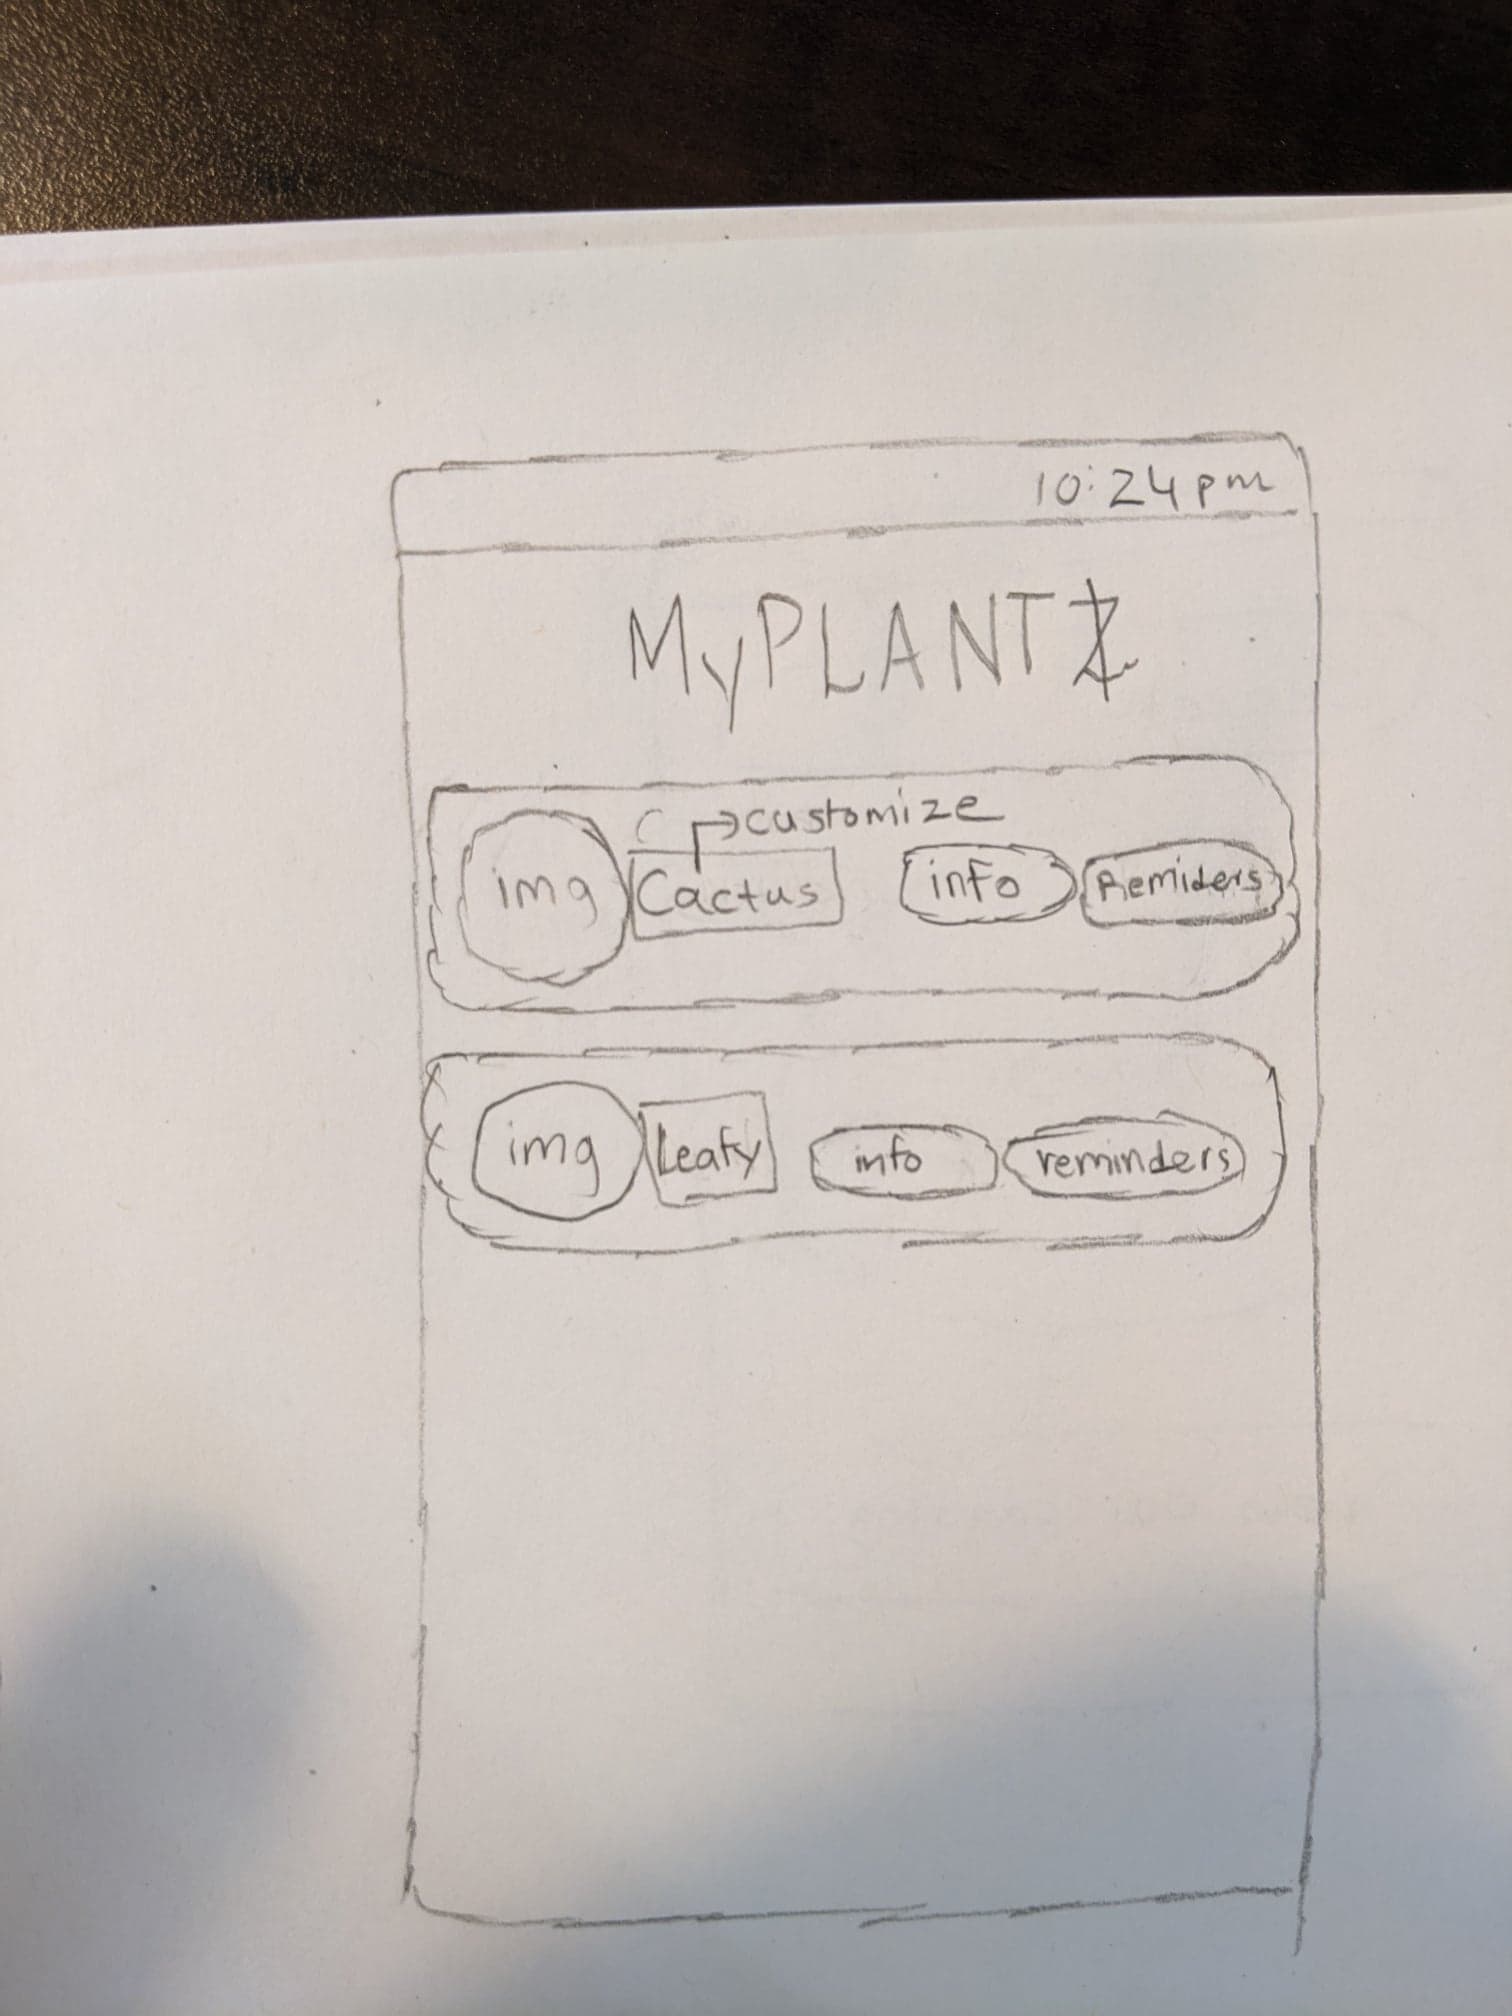 10:24pm
MyPLANTZ
customize
img Cactus info Remiders
img Leafy info reminders